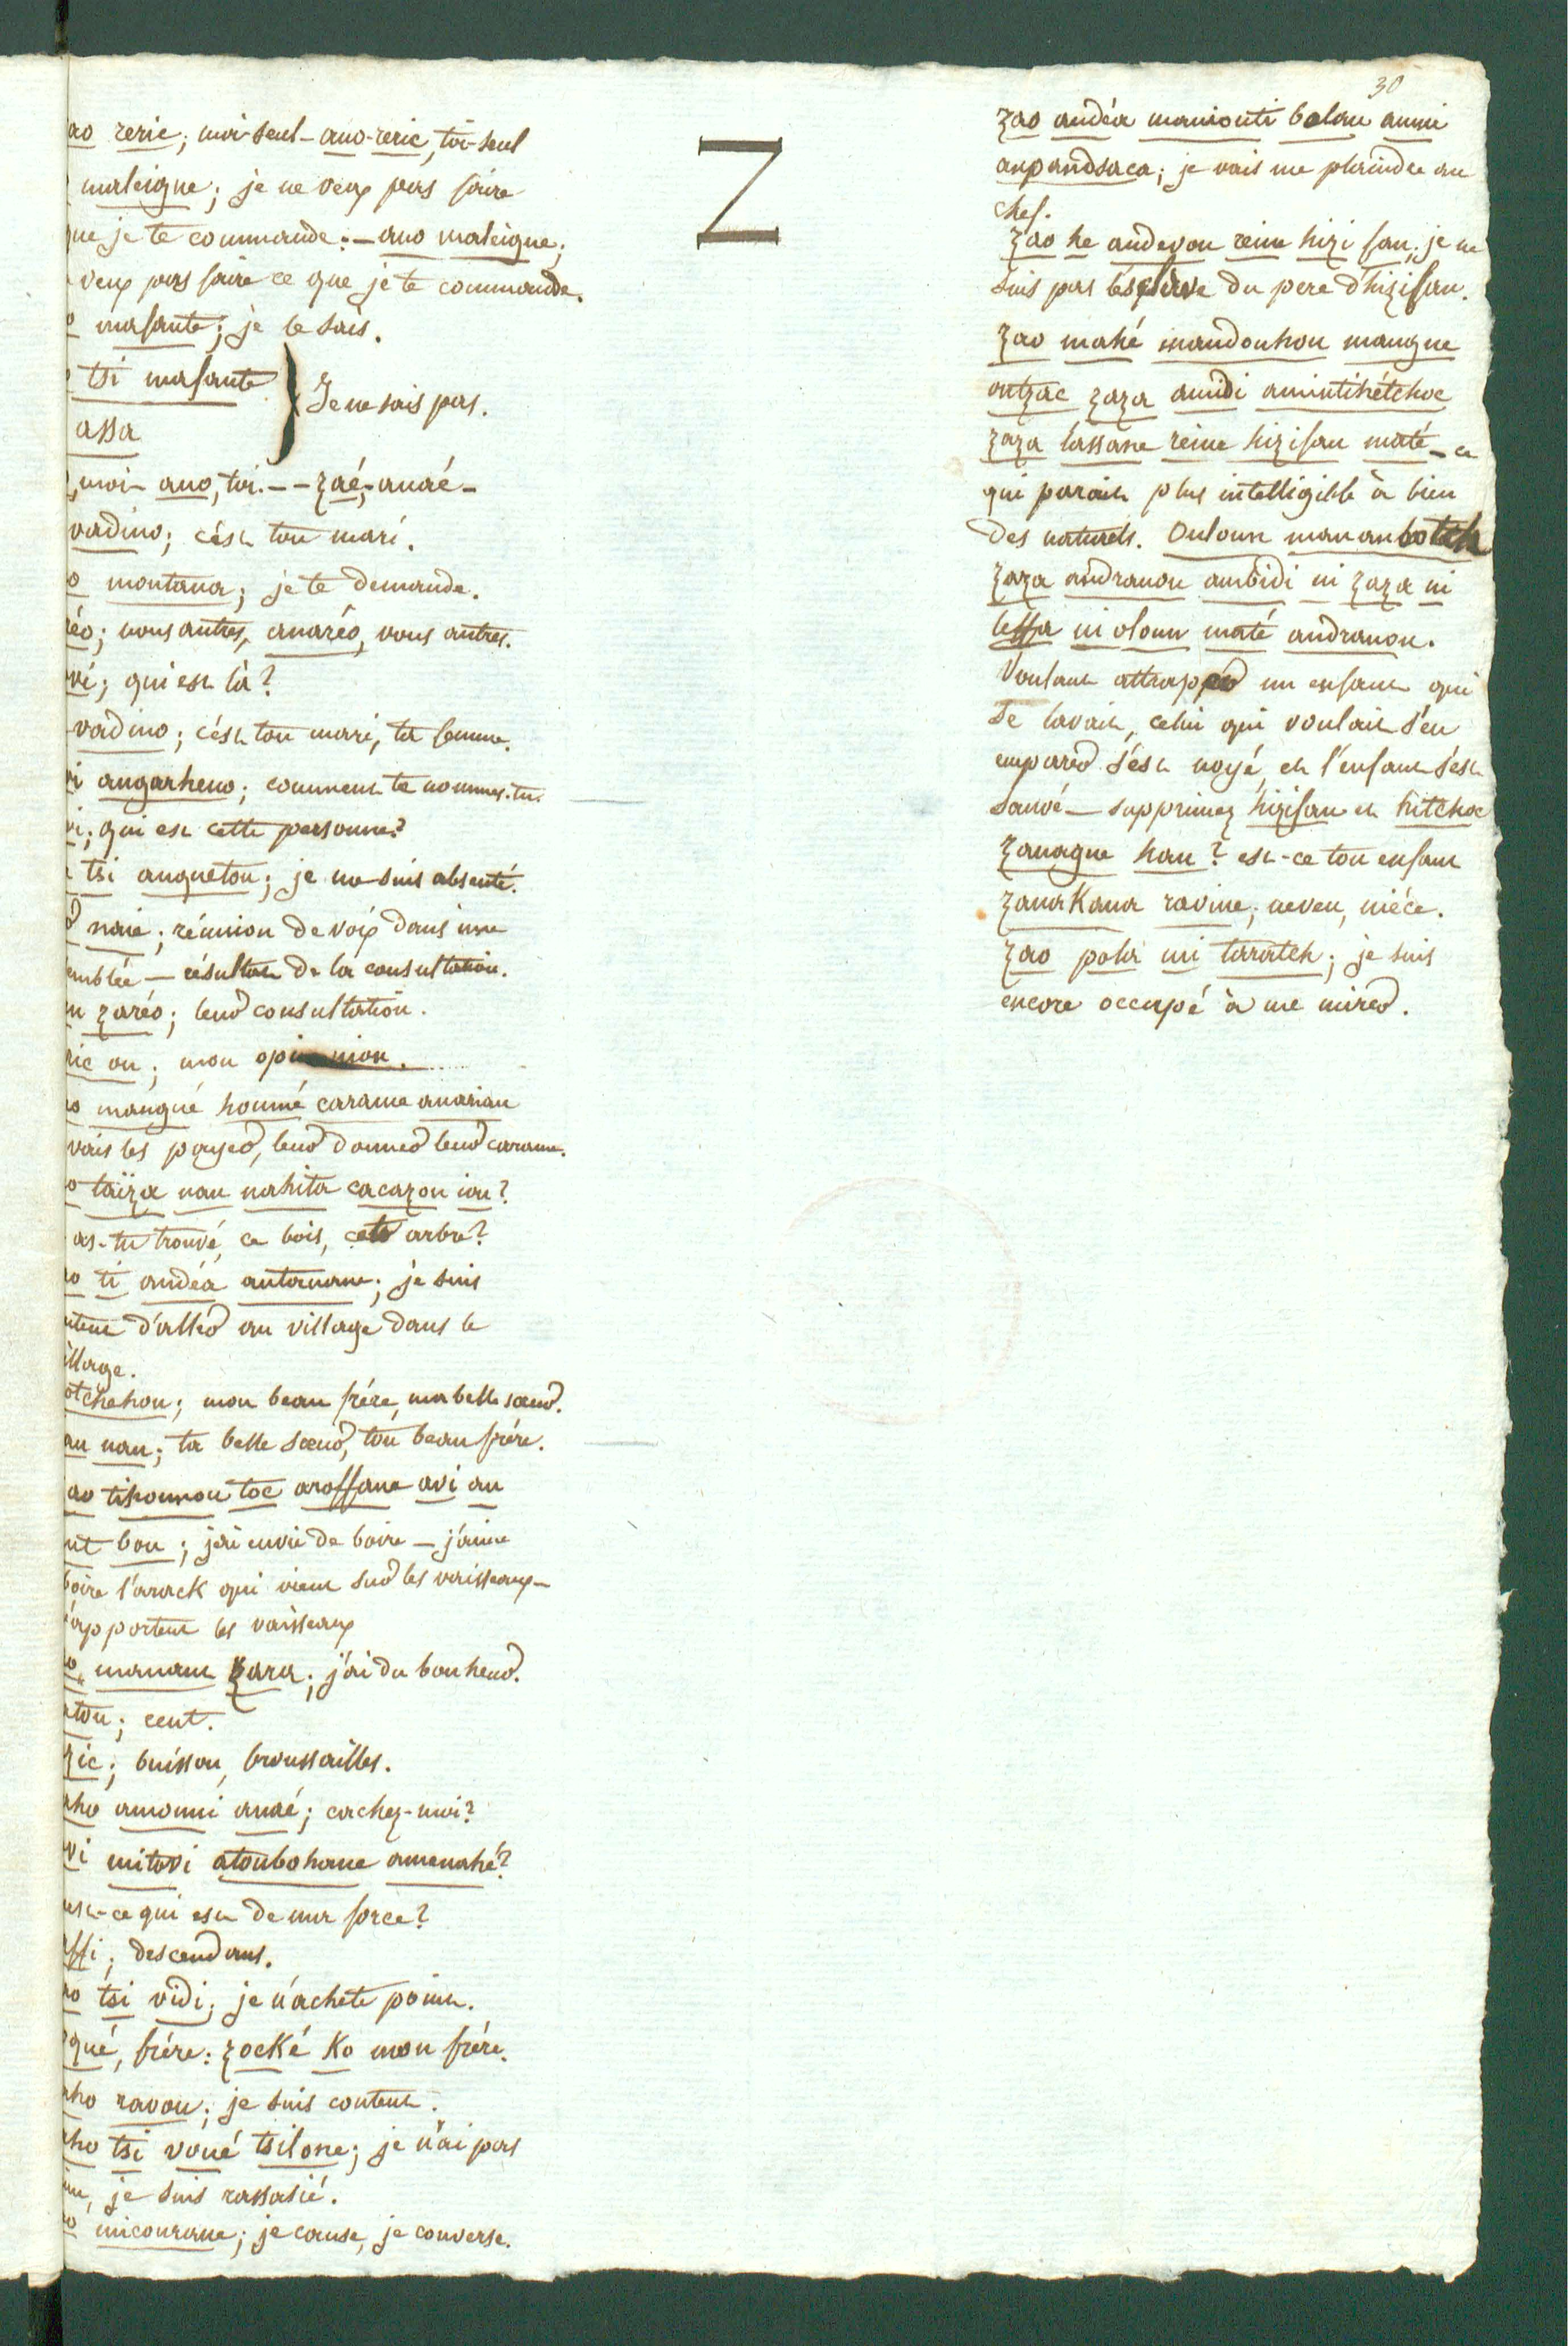 30
Z
ao reric; moi-seul - ano-reric, toi-seul
maleigne; je ne veux pas faire
que je te commande: - ano maleigne;
veux pas faire ce que je te commande.
o mafante; je le sais.
tsi mafante
assa
} Je ne sais pas.
, moi - ano, toi. - - zaé, anaé -
vadino; c'est ton mari.
o montana; je te demande.
réo; nous autres, anaréo, vous autres.
vi; qui est là?
vadino; c'est ton mari, ta femme.
vi angarheno; comment te nommes-tu.
vi; qui est cette personne?
tsi angueton; je me suis absenté.
naie; réunion de voix dans une
emblée - résultat de la consultation.
n zaréo; leur consultation.
ric ou; mon opinion.
ao mangué houmé carame anarian
vais les payer, leur donner leur carame.
o taïza nan nahita cacazou iou?
as-tu trouvé, ce bois, cet arbre?
ao ti andéa antanane; je suis
ntent d'aller au village dans le
illage.
otchehou; mon beau frére, ma belle sœur.
an nan; ta belle sœur, ton beau frére.
ao tihounou toc aroffane avi an
nt bou; j'ai envie de boire - j'aime
boire l'arack qui vient sur les vaisseaux -
apportent les vaisseaux
o, manam zara; j'ai du bonheur.
atou; cent.
zic; buisson, broussailles.
aho amonni anaé; cachez-moi?
vi mitovi atoubohane amenahé?
est-ce qui est de ma force?
affi; descendans.
ao tsi vidi; je n'achete point.
oqué, frére: zocké ko mon frére.
aho ravou; je suis content.
aho tsi voué tsilone; je n'ai pas
im, je suis rassasié.
ao micourane; je cause, je converse.
zao andéa manionti bolan anmi
anpandsaca; je vais me plaindre au
chef.
zao he andevou reine hizi fan; je ne
suis pas l'esclave du pere d'hizifan.
zao mahé mandouhou mangne
ontzac zaza anuidi amintihétchoc
zaza lassane reine hizifan maté - ce
qui parait plus intelligible à bien
des naturels. Ouloun mananbotch
zaza andranou ambidi ni zaza ni
leffa ni oloun maté andranou.
Voulant attrapper un enfant qui
se lavait, celui qui voulait s'en
emparer s'est noyé, et l'enfant s'est
sauvé - supprimez hizifan et hitchoc
zanagne han? est-ce ton enfant
zanakana ravine; neveu, niéce.
zao pola mi taratch; je suis
encore occupé à me mirer.